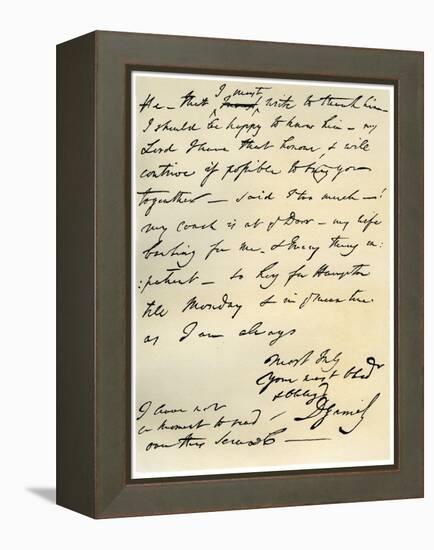 He - that I must write to thank him -
I should be happy to know him - my
Lord I have that honour, & will
contrive if possible to bring you
together - said I too much - !
my coach is at y Door - my wife
bawling for me - & Every thing im
:patient - so hey for Hampton
till Monday & in y mean time
as I am always
Most truly
your most Obed
& Obligd
D Garrick
I have not
a moment to read
over this